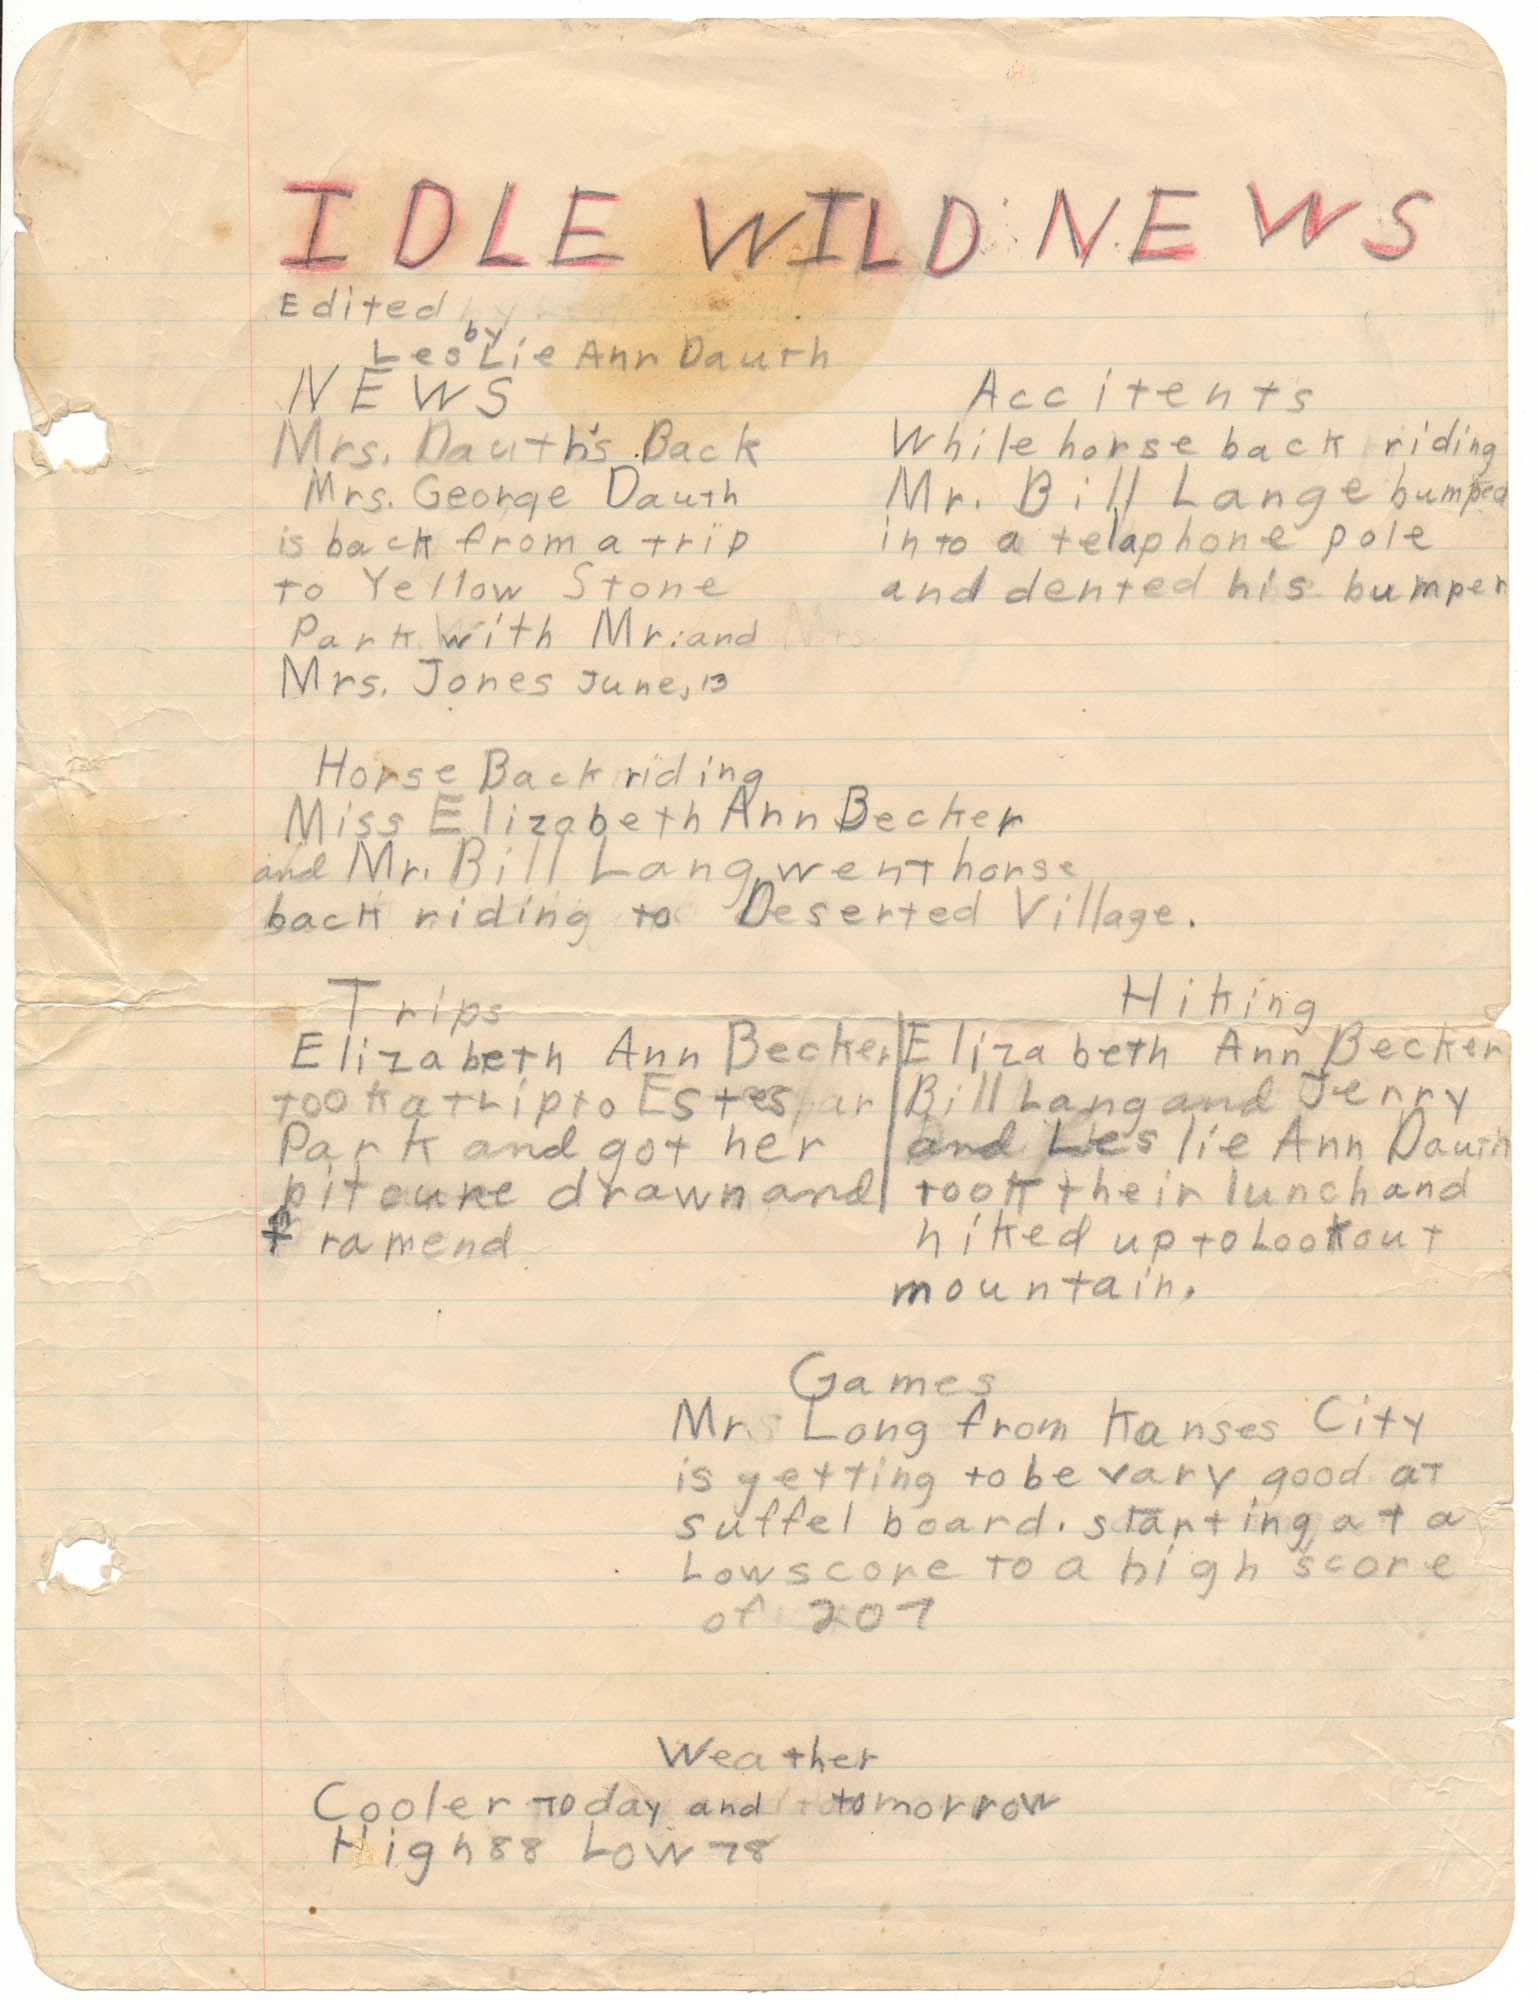 IDLE WILD NEWS
Edited
by
Leslie Ann Dauth
NEWS
Mrs. Dauth's Back
Mrs. George Dauth
is back from a trip
to Yellow Stone
Park With Mr. and
Mrs. Jones June, 13
Accitents
While horse back riding
Mr. Bill Lange bumped
into a telaphone pole
and dented his bumper
Horse Back riding
Miss Elizabeth Ann Becker
and Mr. Bill Lang went horse
back riding to Deserted Village.
Trips
Elizabeth Ann Becker
took a trip to Estes
Park and got her
pitcure drawn and
framend
Hiking
Elizabeth Ann Becker
Bill Lang and Jerry
and Leslie Ann Dauth
took their lunch and
hiked up to Lookout
mountain.
Games
Mr Long from Kanses City
is getting to be vary good at
suffel board. starting at a
Low score to a high score
of 207
Weather
Cooler today and tomorrow
High 88 Low 78